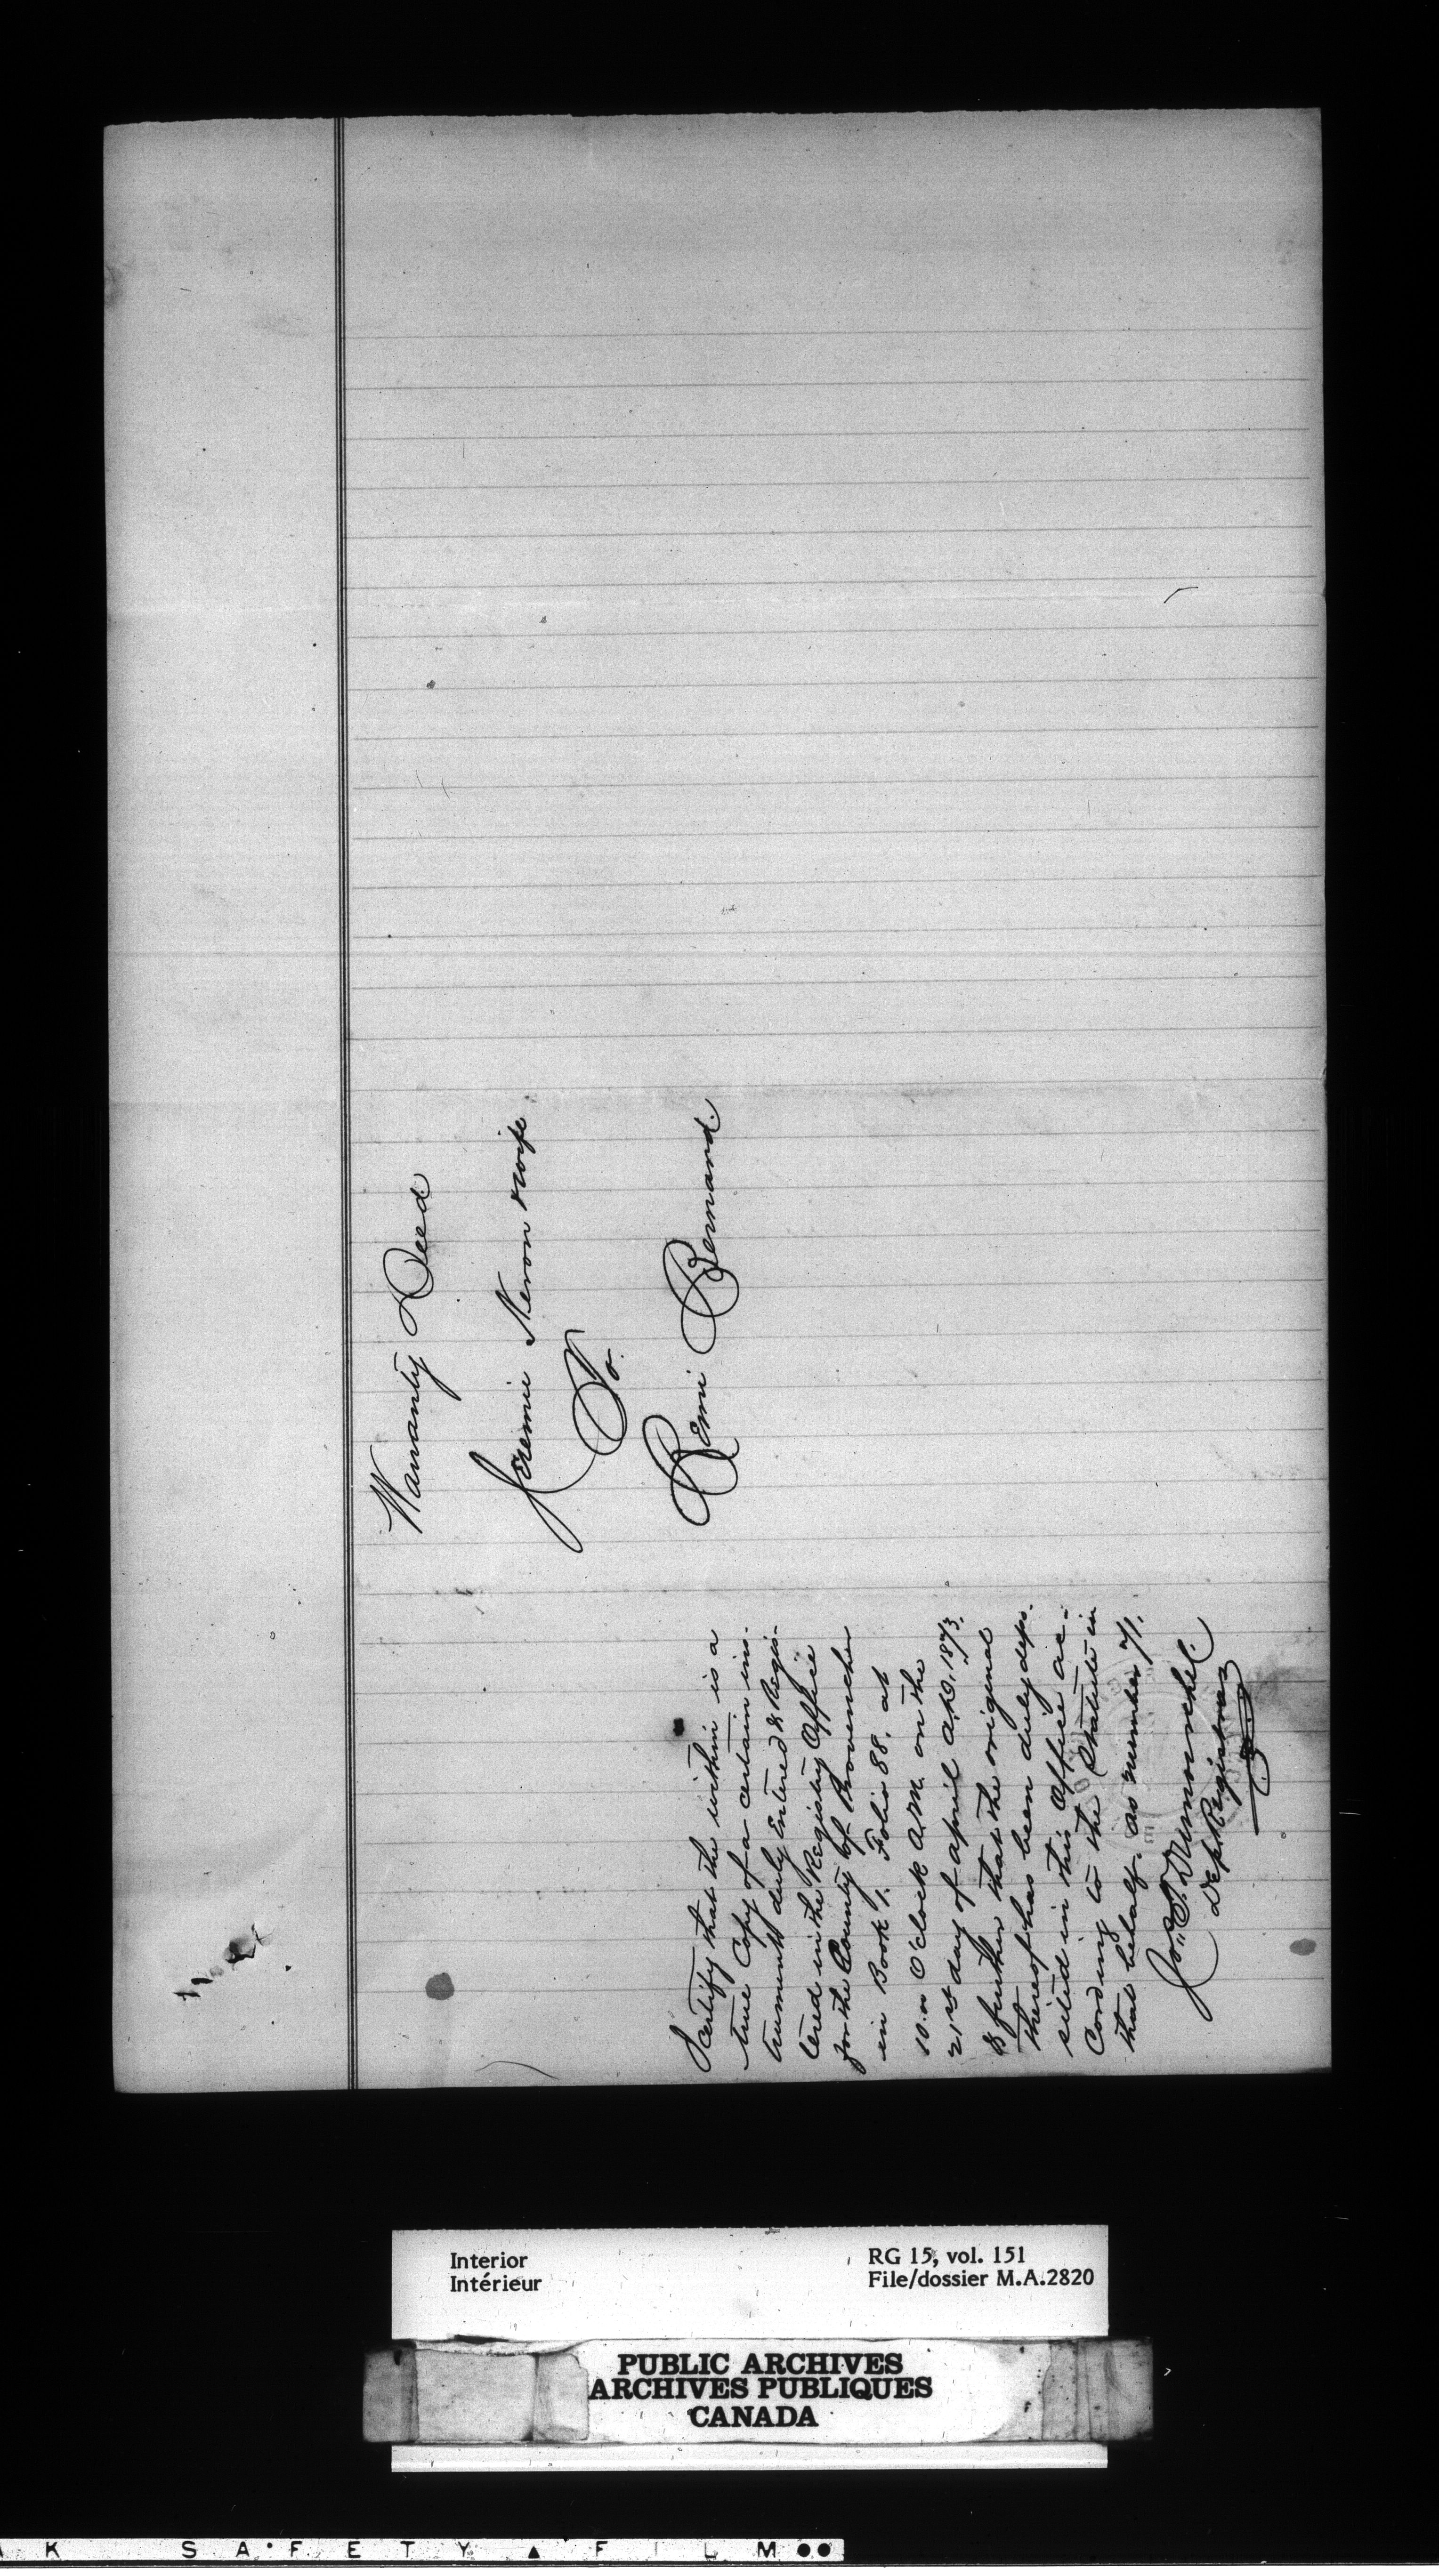 Warranty Deed
Jeremie Neron & wife
To
Remi Bernard.
I certify that the within is a
true Copy of a certain ins-
trument duly Entered & Regis-
tered in the Registry Office
for the County of Provencher
in Book 1. Folio 88. at
10.00 O'Clock A.M. on the
21st day of April A.D. 1873.
& further that the original
thereof has been duly depo-
sited in this Office ac-
Cording to the Statute in
that behalf. as number 71.
Dep Registrar
Interior
Intérieur
RG 15, vol. 151
File/dossier M.A.2820
PUBLIC ARCHIVES
ARCHIVES PUBLIQUES
CANADA
SAFETY FILM